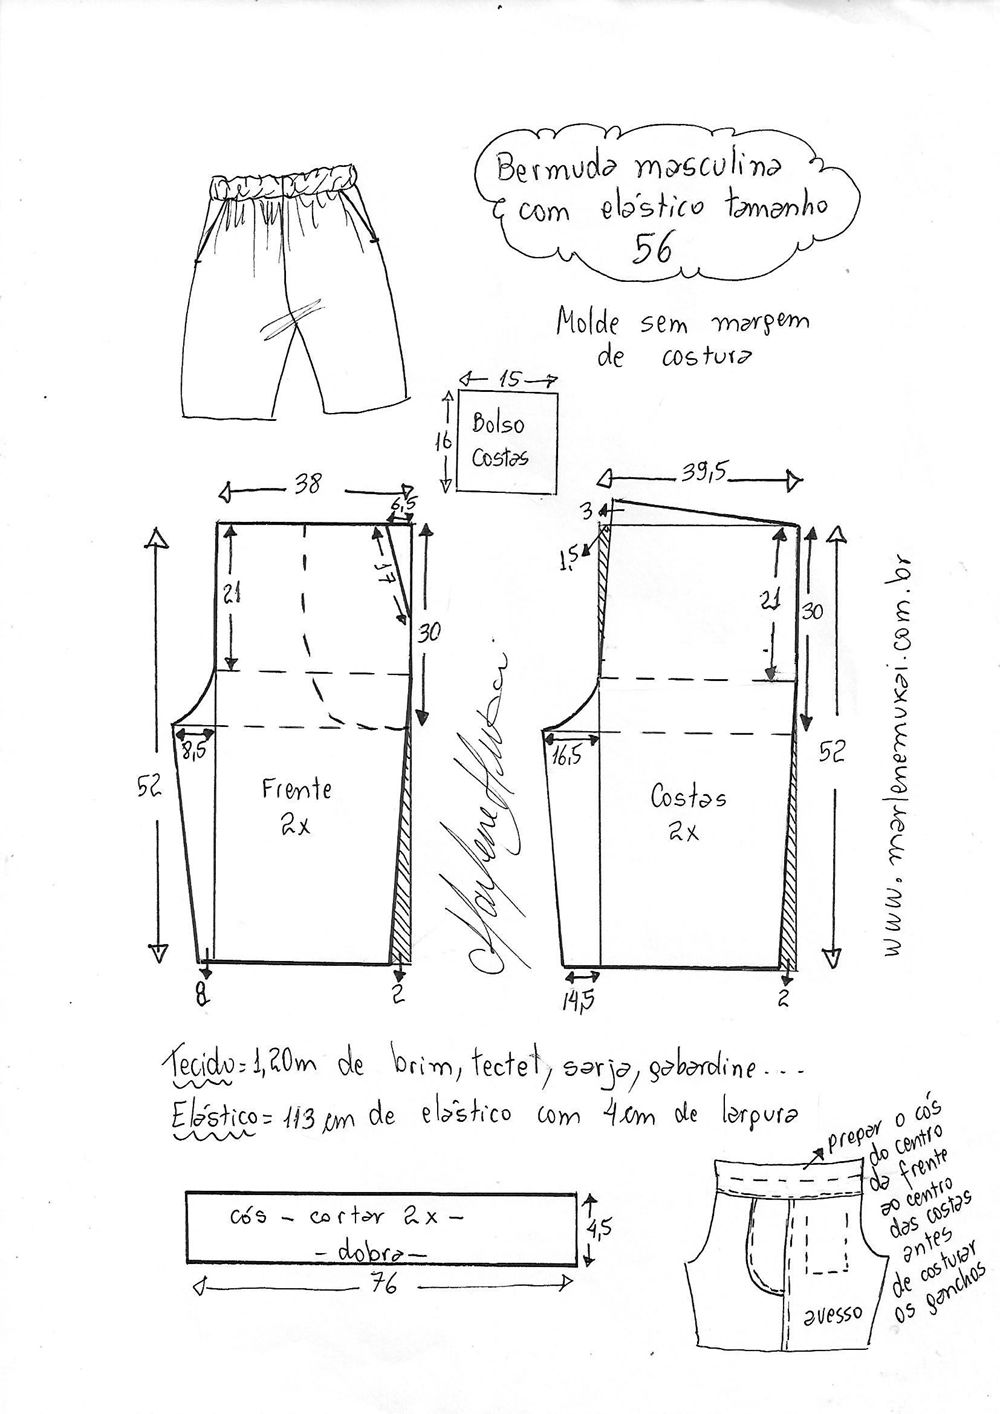 Bermuda masculina
com elástico tamanho
56
Molde sem margem
de costura
15
16
Bolso
Costas
38
6,5
21
17
30
52
8,5
Frente
2x
8
2
39,5
3
1,5
21
30
52
16,5
Costas
2x
14,5
2
Marlene Mukai
www.marlenemukai.com.br
Tecido = 1,20m de brim, tectel, sarja, gabardine...
Elástico = 113 cm de elástico com 4cm de largura
cós - cortar 2x -
- dobra -
4,5
76
pregar o cós
do centro
da frente
ao centro
das costas
antes
de costurar
os ganchos
avesso